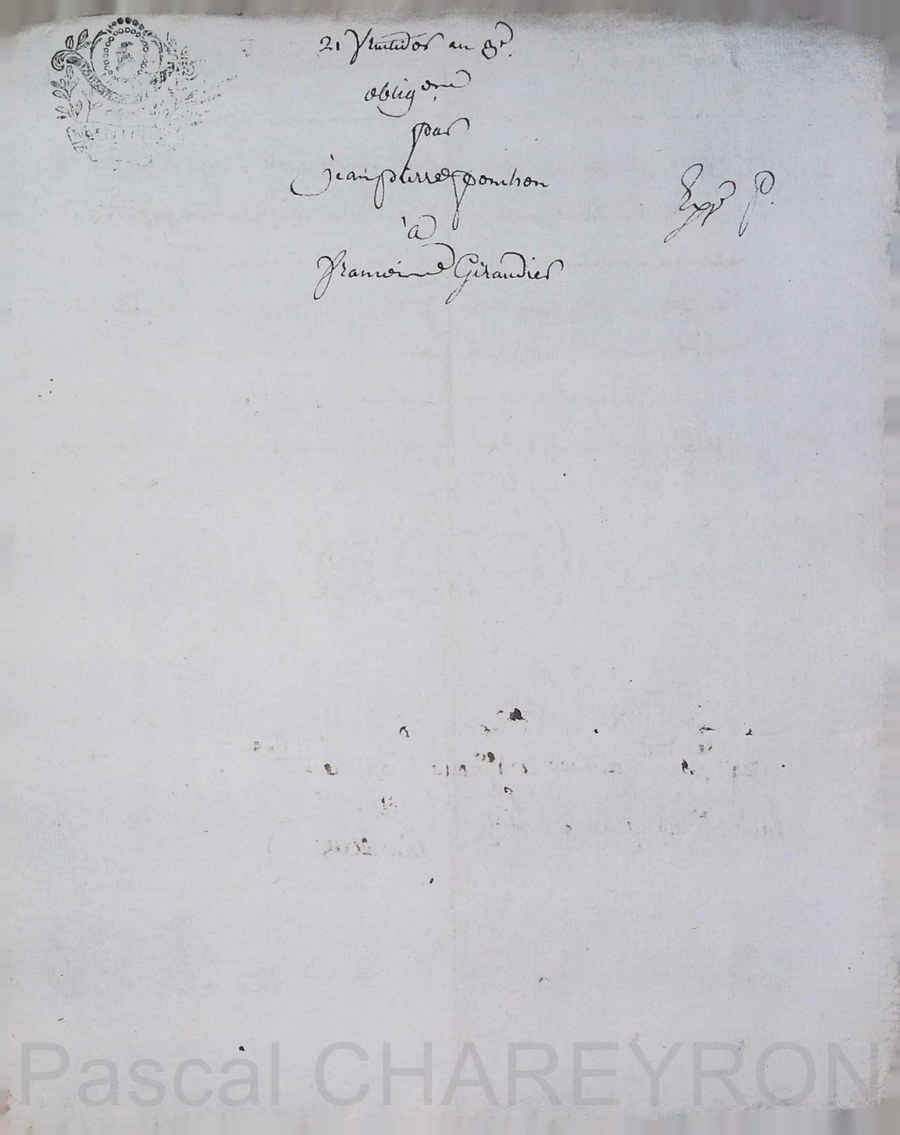 21 fructidor an 9e.
obligaon
par
jean pierre ponchon
à
francoise Giraudier
Expé p.
Pascal CHAREYRON